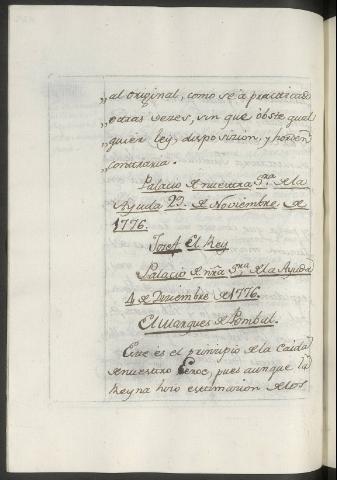 „al original, como se á practicado
„otras vezes, sin que obste qual
„quier ley, disposizion, y horden
„contraria.
Palacio de nuestra Sra de la
Ayuda 29. de Noviembre de
1776.
Josef El Rey
Palacio de nra Sra de la Ayuda
4 de Diziembre de 1776.
El Marques de Pombal.
Este es el principio de la Caida
de nuestro Heroe, pues aunque la
Reyna hizo estimazion de los